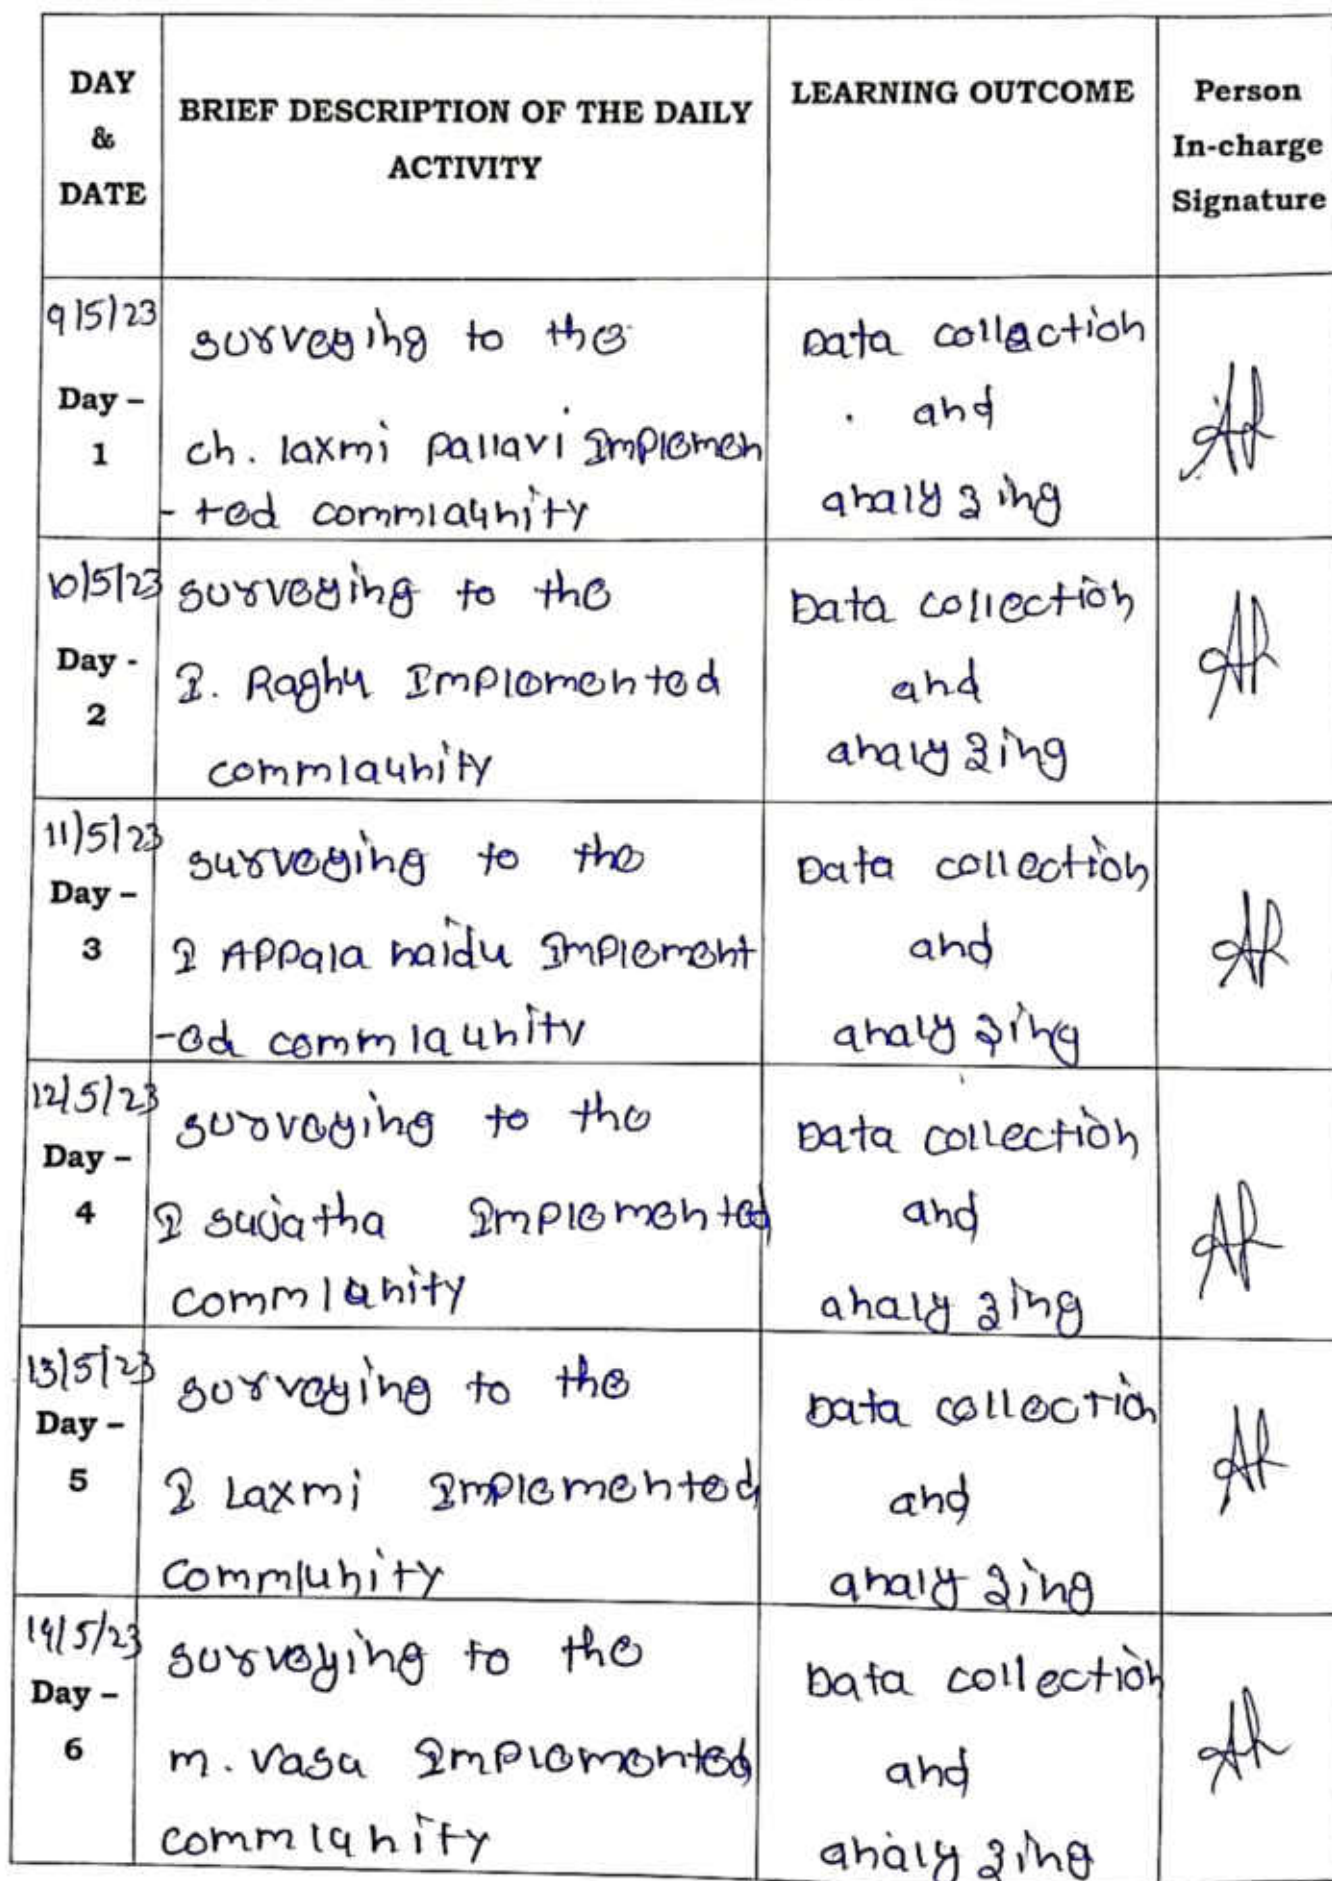 DAY
&
DATE
BRIEF DESCRIPTION OF THE DAILY
ACTIVITY
LEARNING OUTCOME
Person
In-charge
Signature
9/5/23
Day –
1
surveying to the
ch. laxmi pallavi Implemen
-ted commlaunity
Data collection
and
analyzing
10/5/23
Day -
2
surveying to the
I. Raghu Implemented
commlaunity
Data collection
and
analyzing
11/5/23
Day –
3
surveying to the
I Appala naidu Implement
-ed commlaunity
Data collection
and
analyzing
12/5/23
Day –
4
surveying to the
I sujatha Implemented
commlunity
Data collection
and
analyzing
13/5/23
Day –
5
surveying to the
I Laxmi Implemented
commlunity
Data collection
and
analyzing
14/5/23
Day –
6
surveying to the
m. vasu Implemented
commlunity
Data collection
and
analyzing